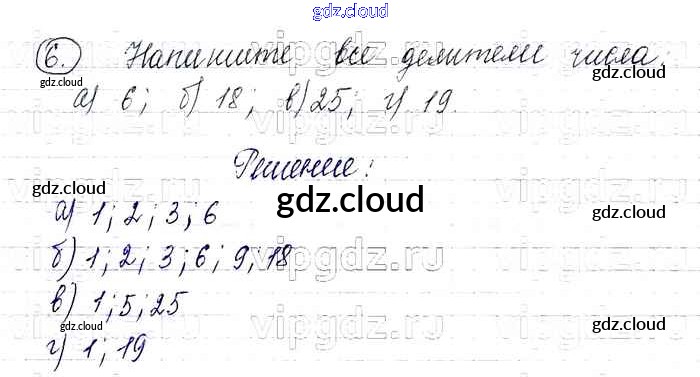 gdz.cloud
6. Напишите все делители числа:
gdz.cloud gdz.cloud
а) 6; б) 18; в) 25; г) 19.
vipgdz.ru vipgdz.ru
gdz.cloud Решение: gdz.cloud
gdz.cloud
а) 1; 2; 3; 6
б) 1; 2; 3; 6; 9; 18
в) 1; 5; 25
gdz.cloud gdz.cloud gdz.cloud
г) 1; 19